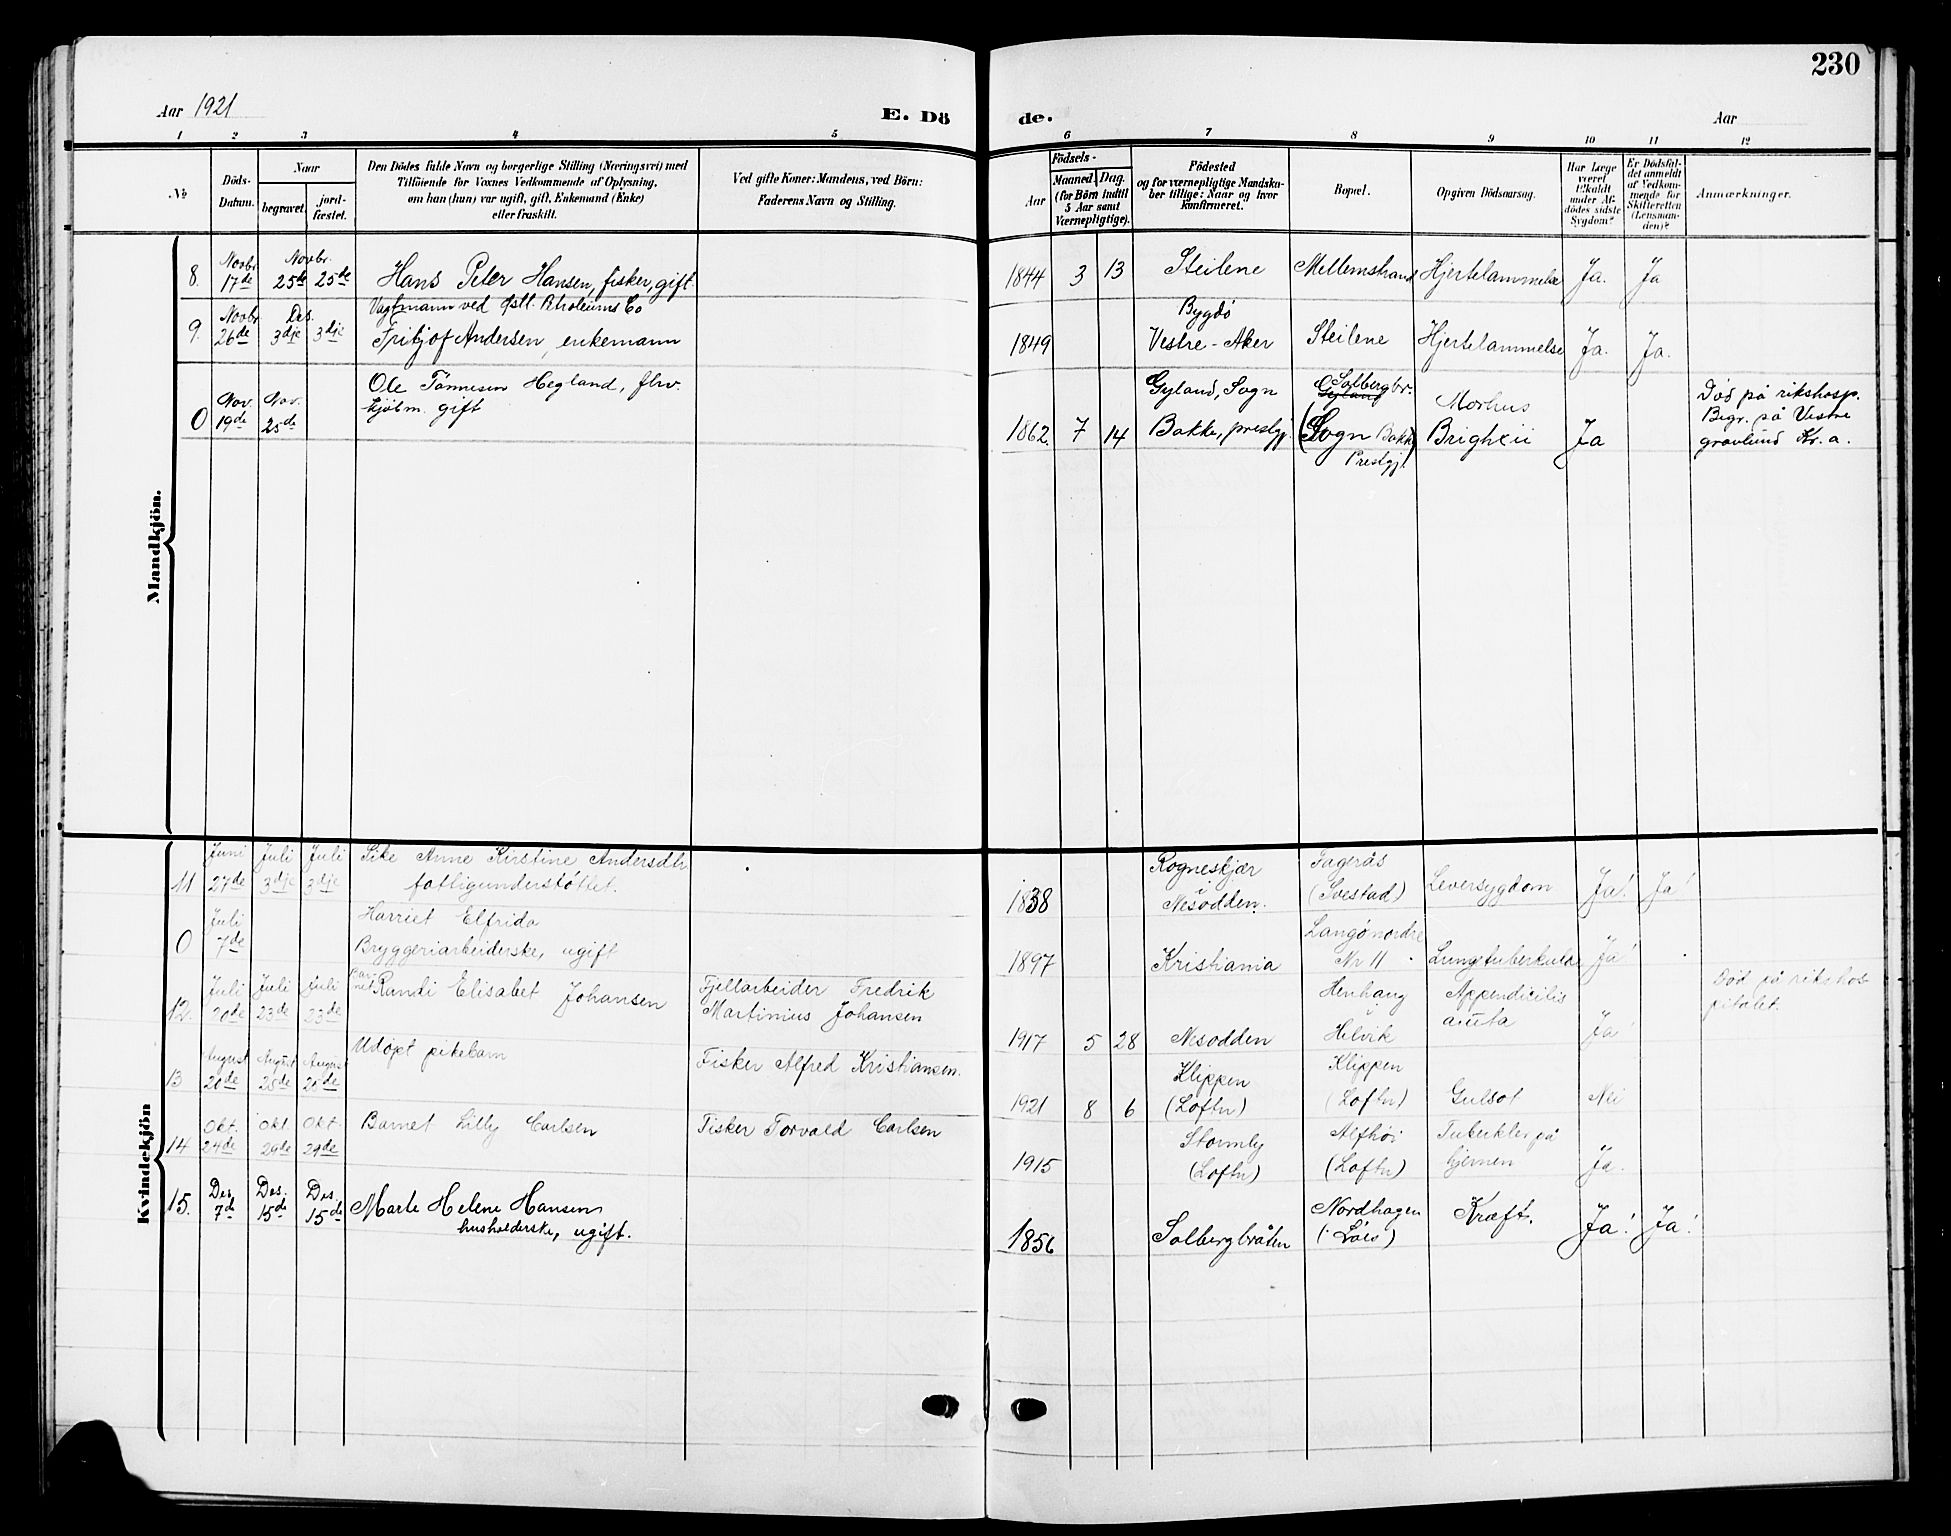 230
Aar 1921
E. Dö
de.
Aar
1 2 3 4 5 6 7 8 9 10 11 12
No
Döds-
Datum.
Naar
begravet.
jord-
fæstet.
Den Dödes fulde Navn og borgerlige Stilling (Næringsvei) med
Tilföiende for Voxnes Vedkommende af Oplysning,
om han (hun) var ugift, gift, Enkemand (Enke)
eller fraskilt.
Ved gifte Koner: Mandens, ved Börn:
Faderens Navn og Stilling.
Födsels-
Aar
Maaned. Dag.
(for Börn indtil
5 Aar samt
Værnepligtige).
Födested
og for værnepligtige Mandska-
ber tillige: Naar og hvor
konfirmeret.
Bopæl.
Opgiven Dödsaarsag.
Har Læge
været
tilkaldt
under Af-
dödes sidste
Sygdom?
Er Dödsfal-
det anmeldt
af Vedkom-
mende for
Skifteretten
(Lensman-
den)?
Anmærkninger.
Mandkjön.
8. Novbr. 17de Novbr. 25de 25de Hans Peter Hansen, fisker, gift. 1844 3 13 Steilene Mellemstrand Hjertelammelse Ja. Ja
9. Novbr. 26de Des. 3dje 3dje Vagtmann ved Østl. Petroleums Co
Fritjof Andersen, enkemann 1849 Bygdø
Vestre-Aker Steilene Hjertelammelse Ja. Ja.
0 Nov. 19de Nov. 25de Ole Tønnesen Hegland, fhv.
kjøbm. gift 1862. 7 14 Gyland, Sogn
Bakke, prestgj. Solbergbr.
Gyland
(Sogn Bakke
Prestgj. Morbus
Brightii Ja Død på rikshosp.
Begr. på Vestre
gravlund Kr.a.
Kvindekjön
11 Juni 27de Juli 3dje Juli 3dje Anne Kirstine Andersdtr
fattigunderstøttet. 1838 Rogneskjær
Nesodden. Fagerås
(Svestad) Leversygdom Ja! Ja!
0 Juli 7de Harriet Elfrida
Bryggeriarbeiderske, ugift 1897 Kristiania Langø nordre
Nr 11 Lungetuberkulose Ja!
12. Juli 20de Juli 23de Juli 23de Barnet Randi Elisabet Johansen Fjellarbeider Fredrik
Martinius Johansen 1917 5 28 Nesodden
Helvik Appendicitis
acuta Ja! Død på rikshos-
pitalet.
13 August 20de August 25de August 25de Udøpt pikebarn Fisker Alfred Kristiansen. 1921 8 6 Klippen
(Loftn) Klippen
(Loftn) Gulsot Nei
14 Okt. 24de Okt 29de Okt. 29de Barnet Lilly Carlsen Fisker Torvald Carlsen 1915 Stormly
(Loftn) Alfhøi
(Loftn) Tuberkler på
hjernen Ja.
15. Des. 7de Des. 15de Des. 15de Marte Helene Hansen
husholderske, ugift. 1856 Solbergbråten Nordhagen Kræft. Ja! Ja!